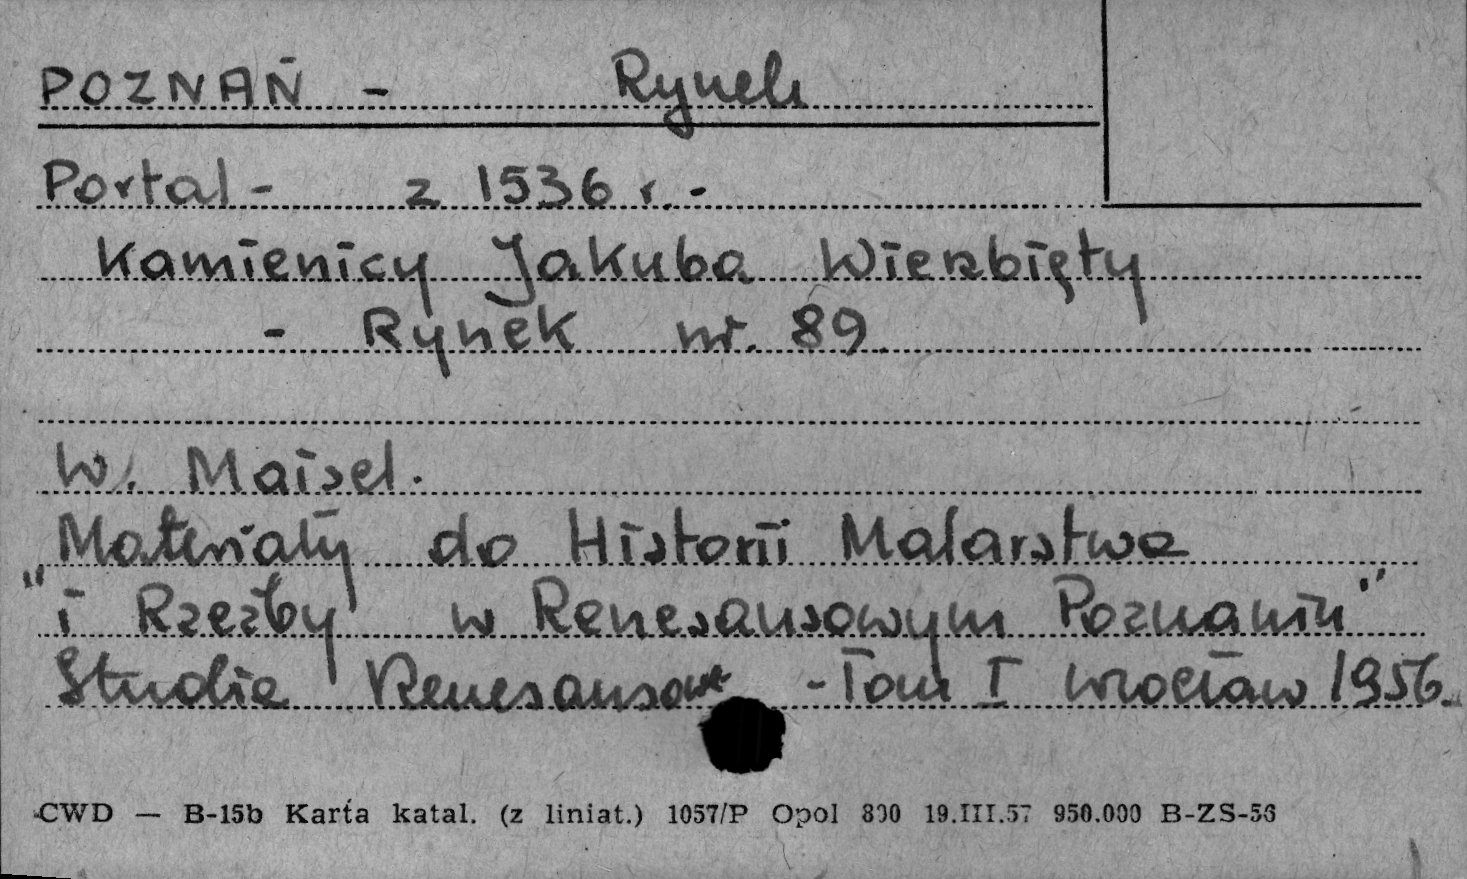 POZNAŃ - Rynek
Portal - z 1536 r. -
Kamienicy Jakuba Wierzbięty
- Rynek nr. 89
W. Maisel.
Materiały do Historii Malarstwa
" i Rzeźby w Renesansowym Poznaniu"
Studia Renesansowe - Tom I Wrocław 1956
CWD — B-15b Karta katal. (z liniat.) 1057/P Opol 800 19.III.57 950.000 B-ZS-56